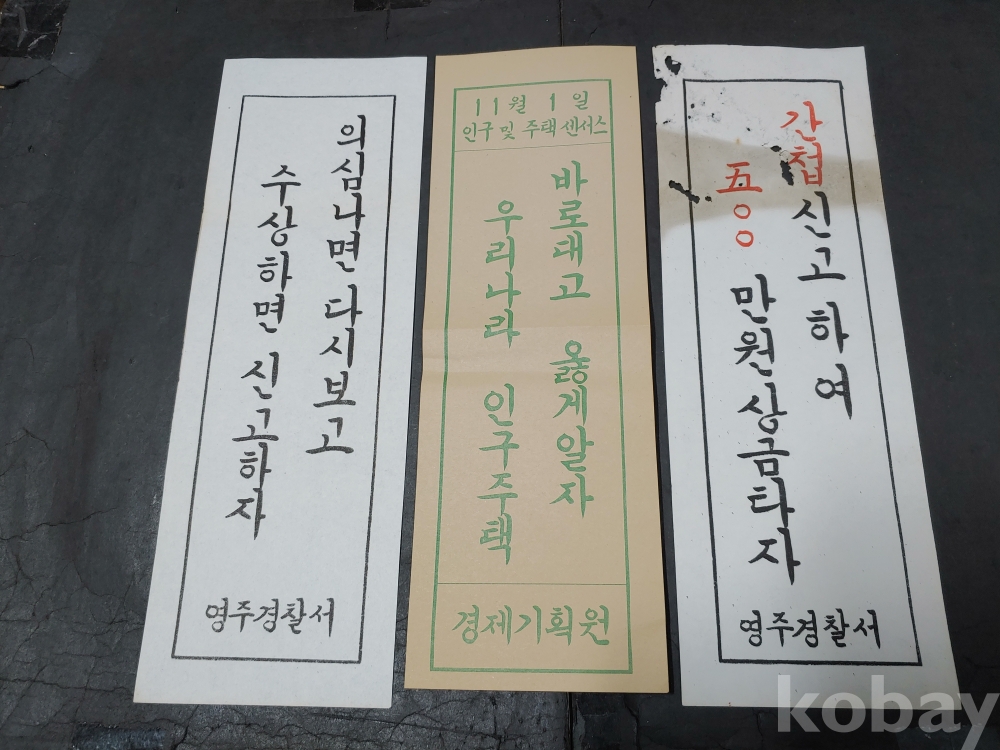 의심나면 다시보고
수상하면 신고하자
영주경찰서
11월 1일
인구 및 주택센서스
바로대고 옳게알자
우리나라 인구주택
경제기획원
간첩신고하여
五〇〇만원상금타자
영주경찰서
kobay